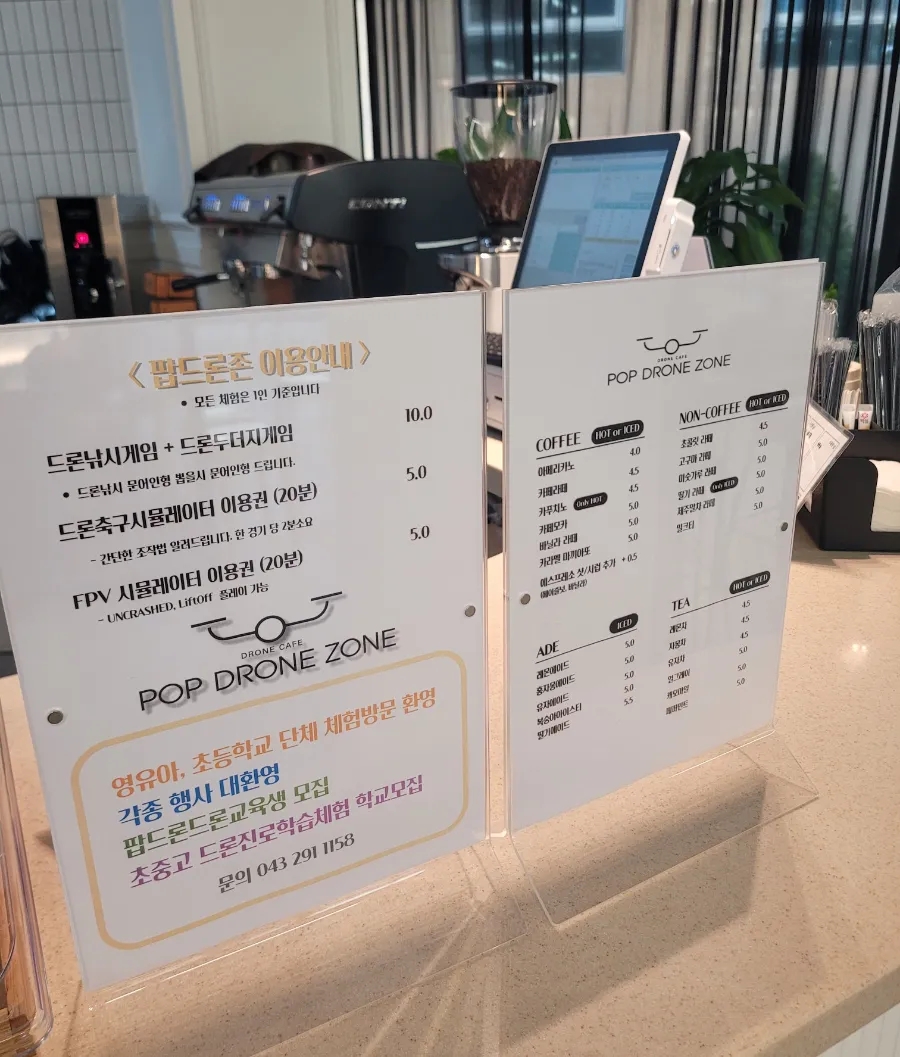 < 팝드론존 이용안내 >
• 모든 체험은 1인 기준입니다
드론낚시게임 + 드론두더지게임 10.0
• 드론낚시 문어인형 뽑을시 문어인형 드립니다.
드론축구시뮬레이터 이용권 (20분) 5.0
- 간단한 조작법 알려드립니다. 한 경기 당 2분소요
FPV 시뮬레이터 이용권 (20분) 5.0
- UNCRASHED, Liftoff 플레이 가능
DRONE CAFE
POP DRONE ZONE
영유아, 초등학교 단체 체험방문 환영
각종 행사 대환영
팝드론드론교육생 모집
초중고 드론진로학습체험 학교모집
문의 043 291 1158
DRONE CAFE
POP DRONE ZONE
COFFEE HOT or ICED
아메리카노 4.0
카페라떼 4.5
카푸치노 Only HOT 4.5
카페모카 5.0
바닐라 라떼 5.0
카라멜 마끼아또 5.0
에스프레소 샷/시럽 추가 +0.5
(헤이즐넛, 바닐라)
NON-COFFEE HOT or ICED
초콜릿 라떼 4.5
고구마 라떼 5.0
미숫가루 라떼 5.0
딸기 라떼 Only ICED 5.0
제주말차 라떼 5.0
밀크티 5.0
ADE ICED
레몬에이드 5.0
홍자몽에이드 5.0
유자에이드 5.0
복숭아아이스티 5.0
딸기에이드 5.5
TEA HOT or ICED
레몬차 4.5
자몽차 4.5
유자차 4.5
얼그레이 5.0
캐모마일 5.0
페퍼민트